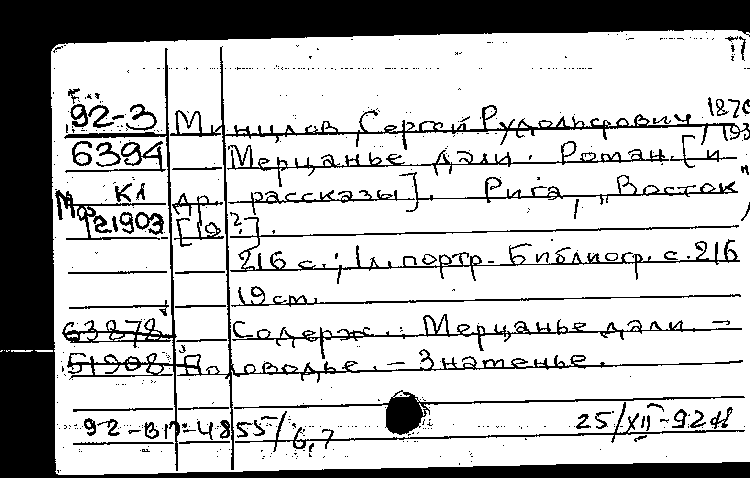 92-3 Минцлов, Сергей Рудольфович, 1870
6394 Мерцанье дали. Роман. [и
К1 др. рассказы]. Рига, „Восток",
121903 [19 ?].
216 с.; 1 л. портр. - Библиогр. с. 216
19 cm.
63878 Содерж.: Мерцанье дали. -
51908 Половодье. - Знаменье.
92-ВП-4855/6,7 25/XII-92